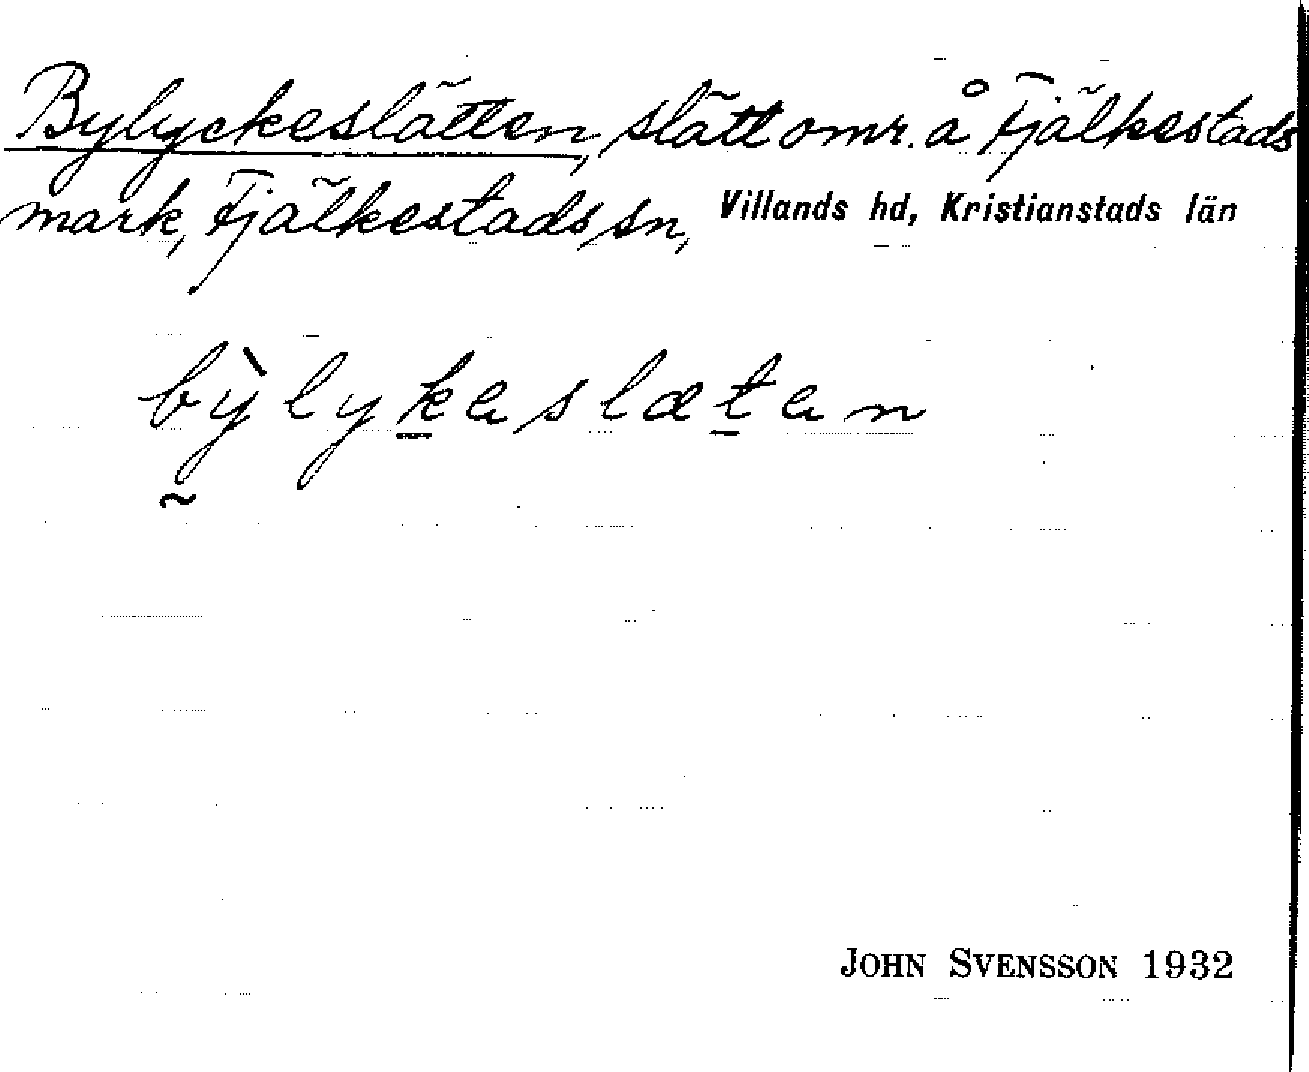 Bylyckeslätten, slätt omr. å Fjälkestads
mark, Fjälkestads sn, Villands hd, Kristianstads län
bỳ̰lyk̲aslæt̲an
JOHN SVENSSON 1932